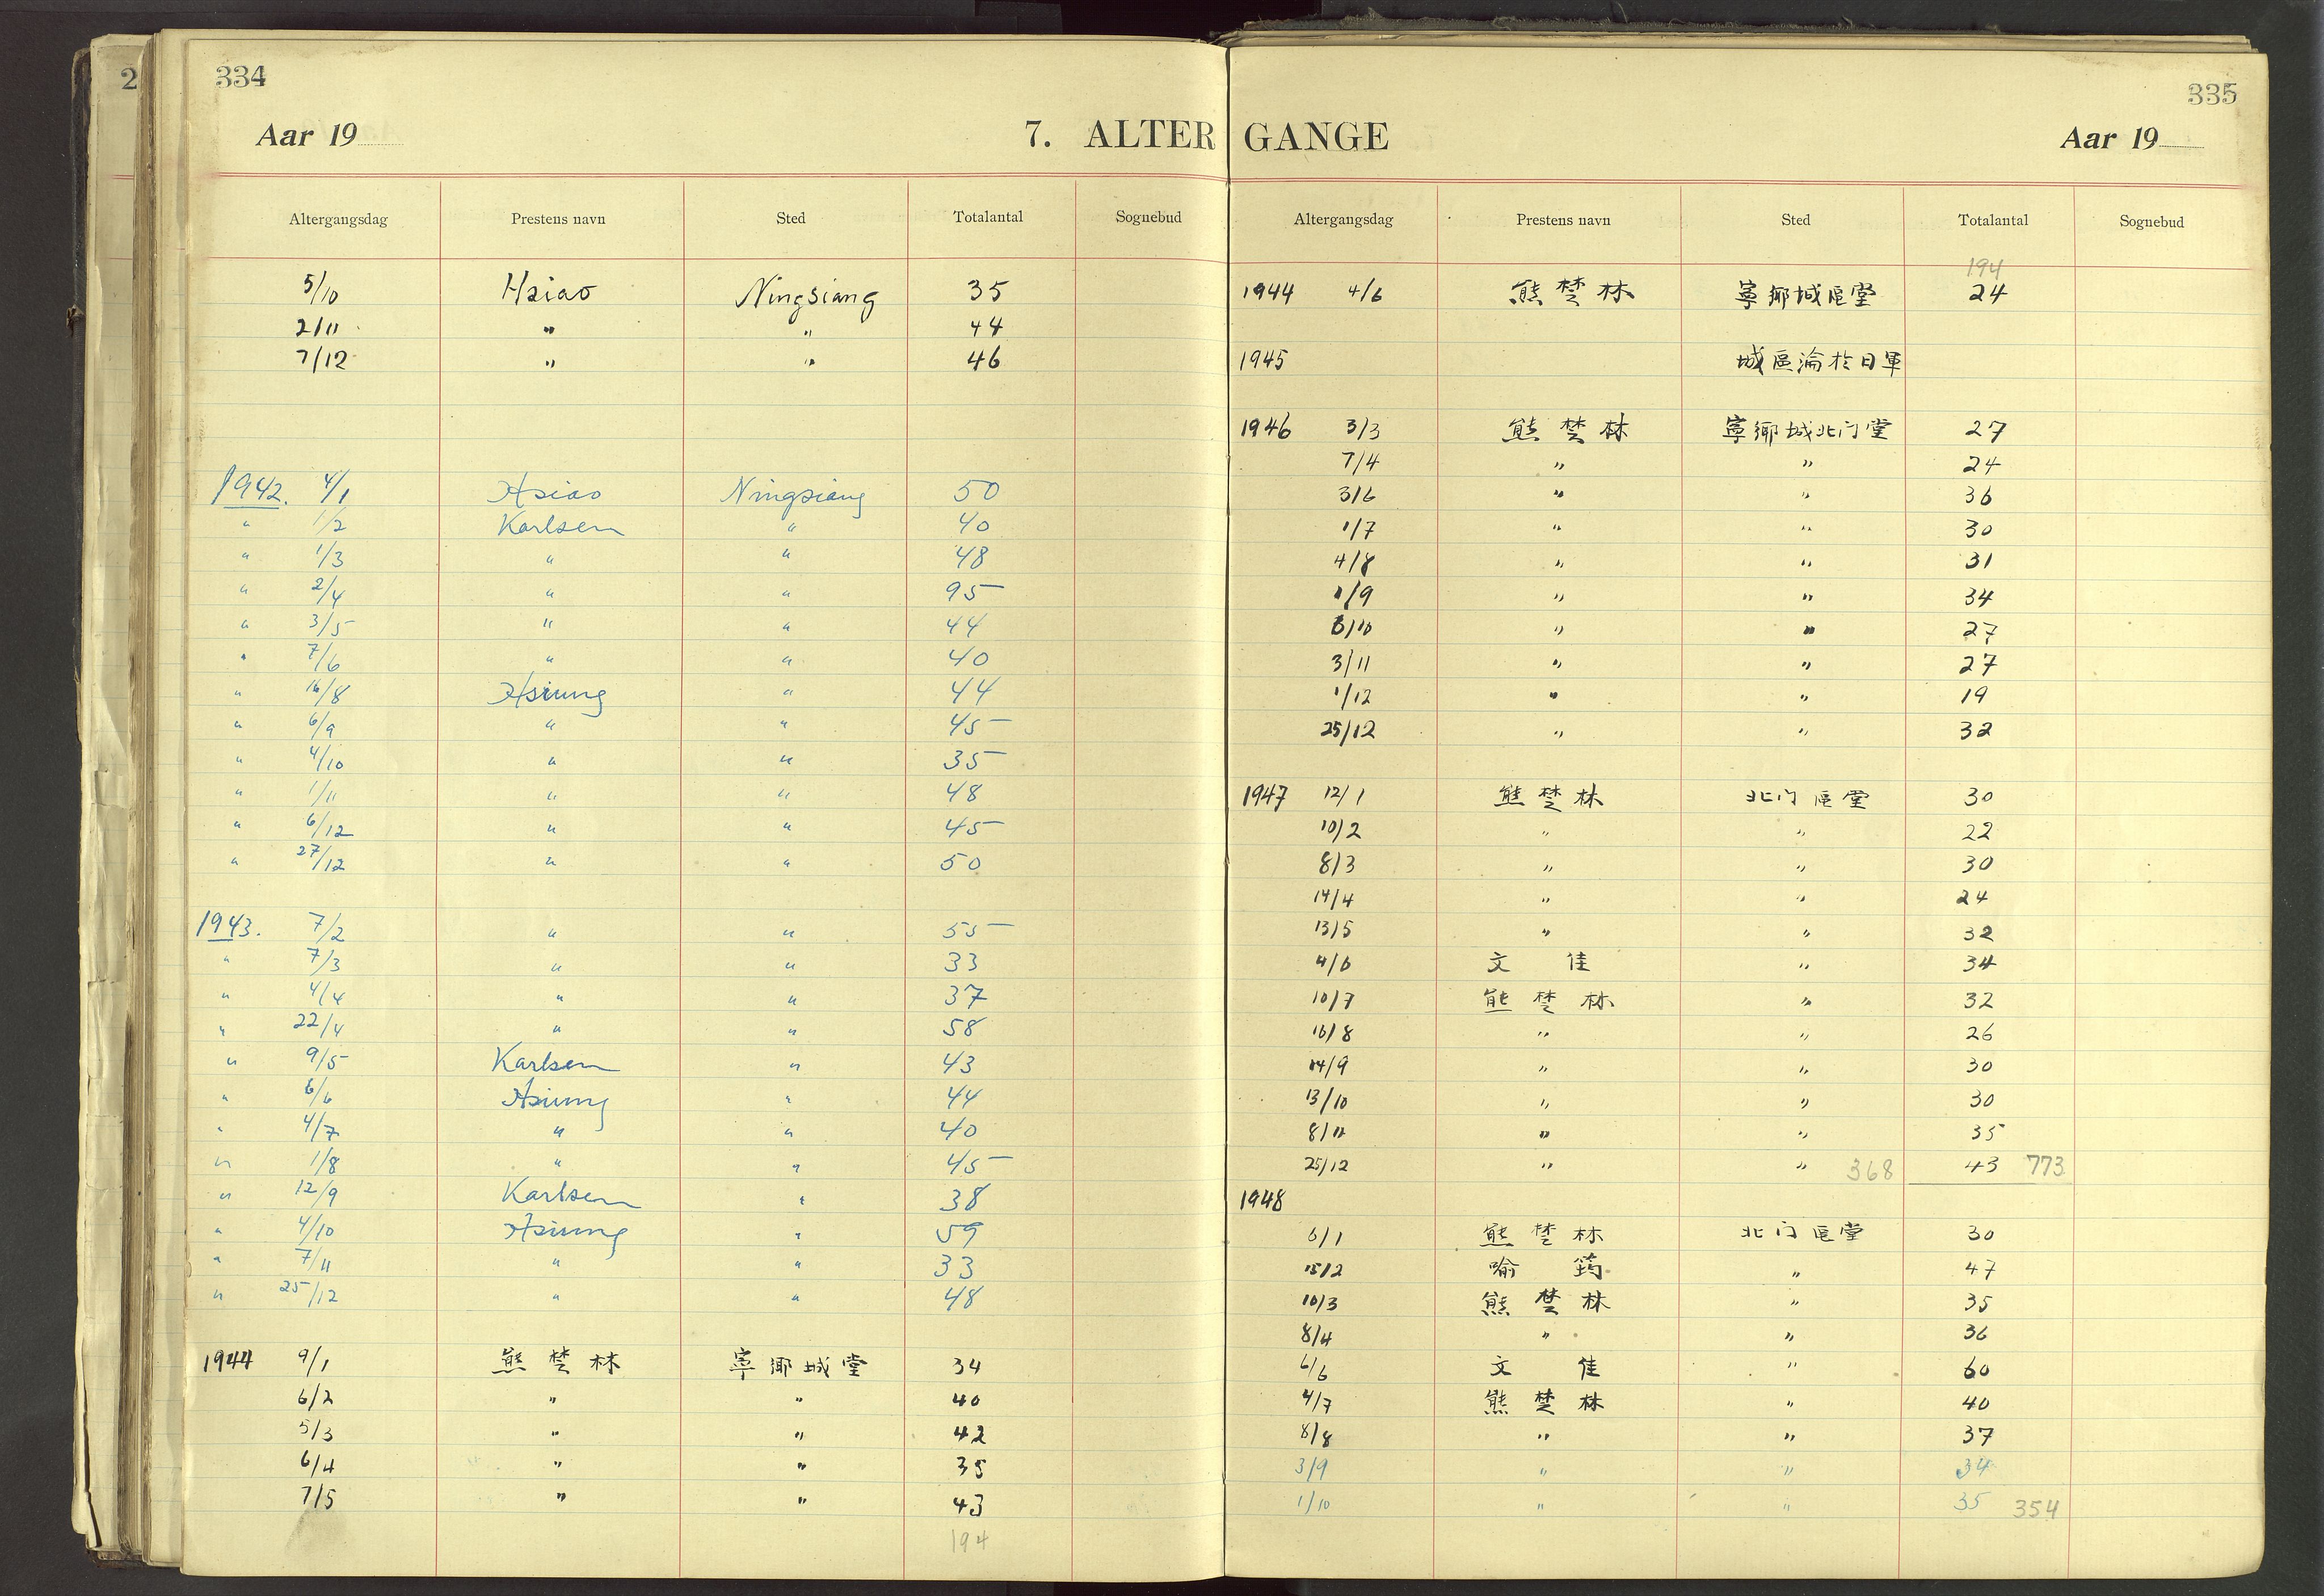 2
334
Aar 19
7. ALTER
Altergangsdag Prestens navn Sted Totalantal Sognebud
5/10 Hsiao Ningsiang 35
2/11 " " 44
7/12 " " 46
1942. 4/1 Hsiao Ningsiang 50
" 1/2 Karlsen " 40
" 1/3 " " 48
" 2/4 " " 95
" 3/5 " " 44
" 7/6 " " 40
" 16/8 Hsiung " 44
" 6/9 " " 45
" 4/10 " " 35
" 1/11 " " 48
" 6/12 " " 45
" 27/12 " " 50
1943. 7/2 " " 55
" 7/3 " " 33
" 4/4 " " 37
" 22/4 " " 58
" 9/5 Karlsen " 43
" 6/6 Hsiung " 44
" 4/7 " " 40
" 1/8 " " 45
" 12/9 Karlsen " 38
" 4/10 Hsiung " 59
" 7/11 " " 33
" 25/12 " " 48
1944 9/1 熊楚林 寧鄉城堂 34
6/2 " " 40
5/3 " " 42
6/4 " " 35
7/5 " " 43
194
335
GANGE
Aar 19
Altergangsdag Prestens navn Sted Totalantal Sognebud
194
1944 4/6 熊楚林 寧鄉城區堂 24
1945 城區淪於日軍
1946 3/3 熊楚林 寧鄉城北门堂 27
7/4 " " 24
3/6 " " 36
1/7 " " 30
4/8 " " 31
1/9 " " 34
6/10 " " 27
3/11 " " 27
1/12 " " 19
25/12 " " 32
1947 12/1 熊楚林 北门區堂 30
10/2 " " 22
8/3 " " 30
14/4 " " 24
13/5 " " 32
4/6 文佳 " 34
10/7 熊楚林 " 32
16/8 " " 26
14/9 " " 30
13/10 " " 30
8/11 " " 35
25/12 " " 368 43 773
1948
6/1 熊楚林 北门區堂 30
15/2 喻筠 " 47
10/3 熊楚林 " 35
8/4 " " 36
6/6 文佳 " 60
4/7 熊楚林 " 40
8/8 " " 37
3/9 " " 34
1/10 " " 35 354